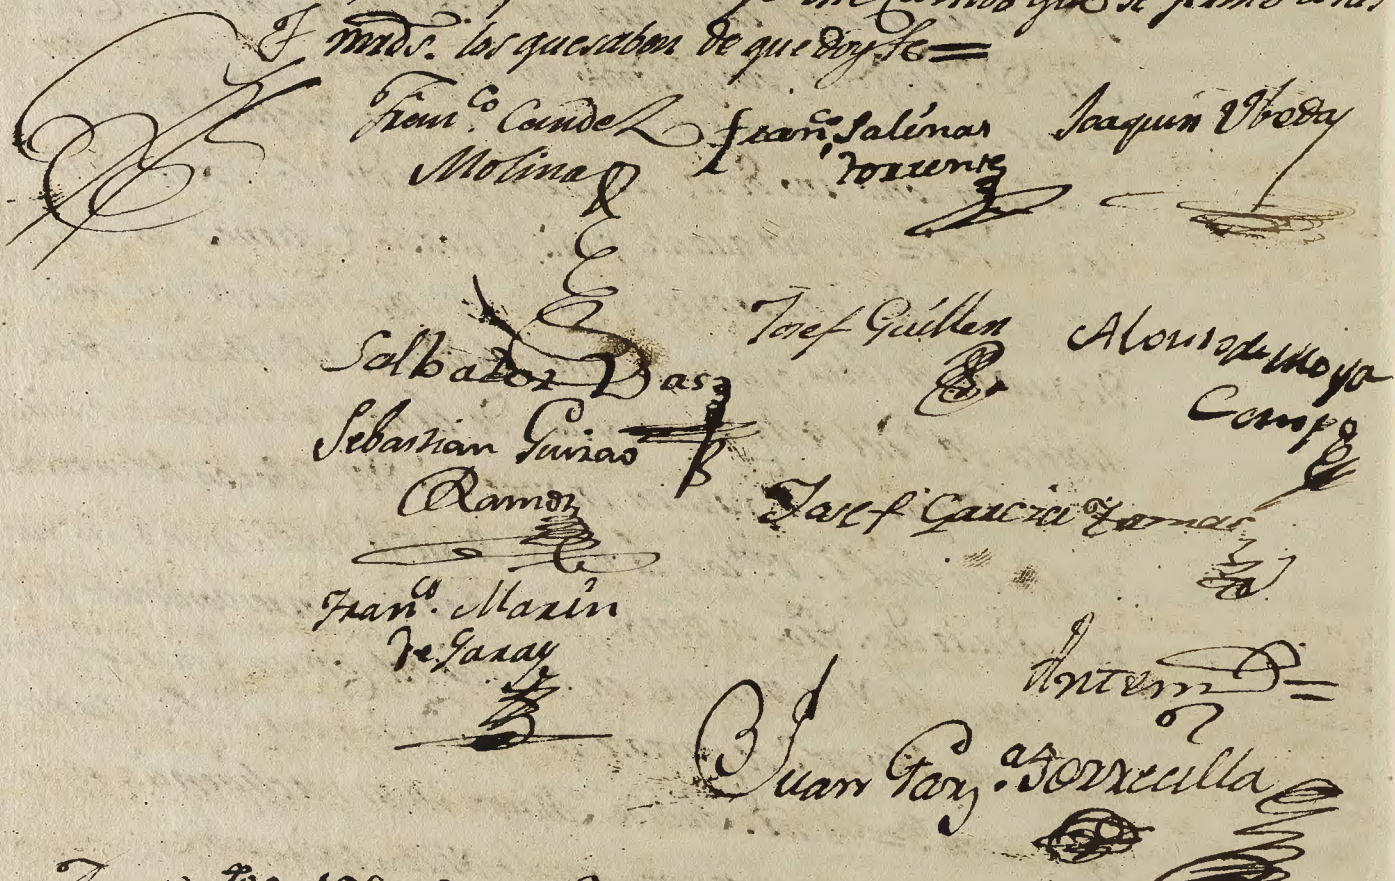 que se
mrds. los que saben de que doy fe =
Franco. Candel
Molina
Franco. Salinas
Torrente
Joaquin Ubeda
Salbador Bas
Josef Guillen
Alonso de Moya
Campo
Sebastian Guirao
Ramon
Josef Garcia Tomas
Franco. Marin
de Garay
Antemi =
Juan Garza. Torrecilla